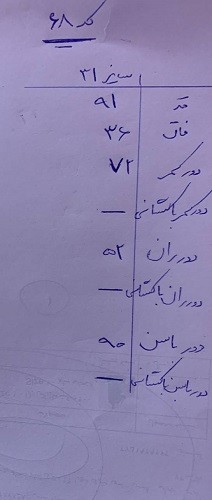 کد ۶۸
سایز ۳۱
قد ۹۱
فاق ۳۶
دور کمر ۷۲
دور کمر با کشسانی —
دور ران ۵۲
دور ران با کشسانی —
دور باسن ۹۰
دور باسن با کشسانی —